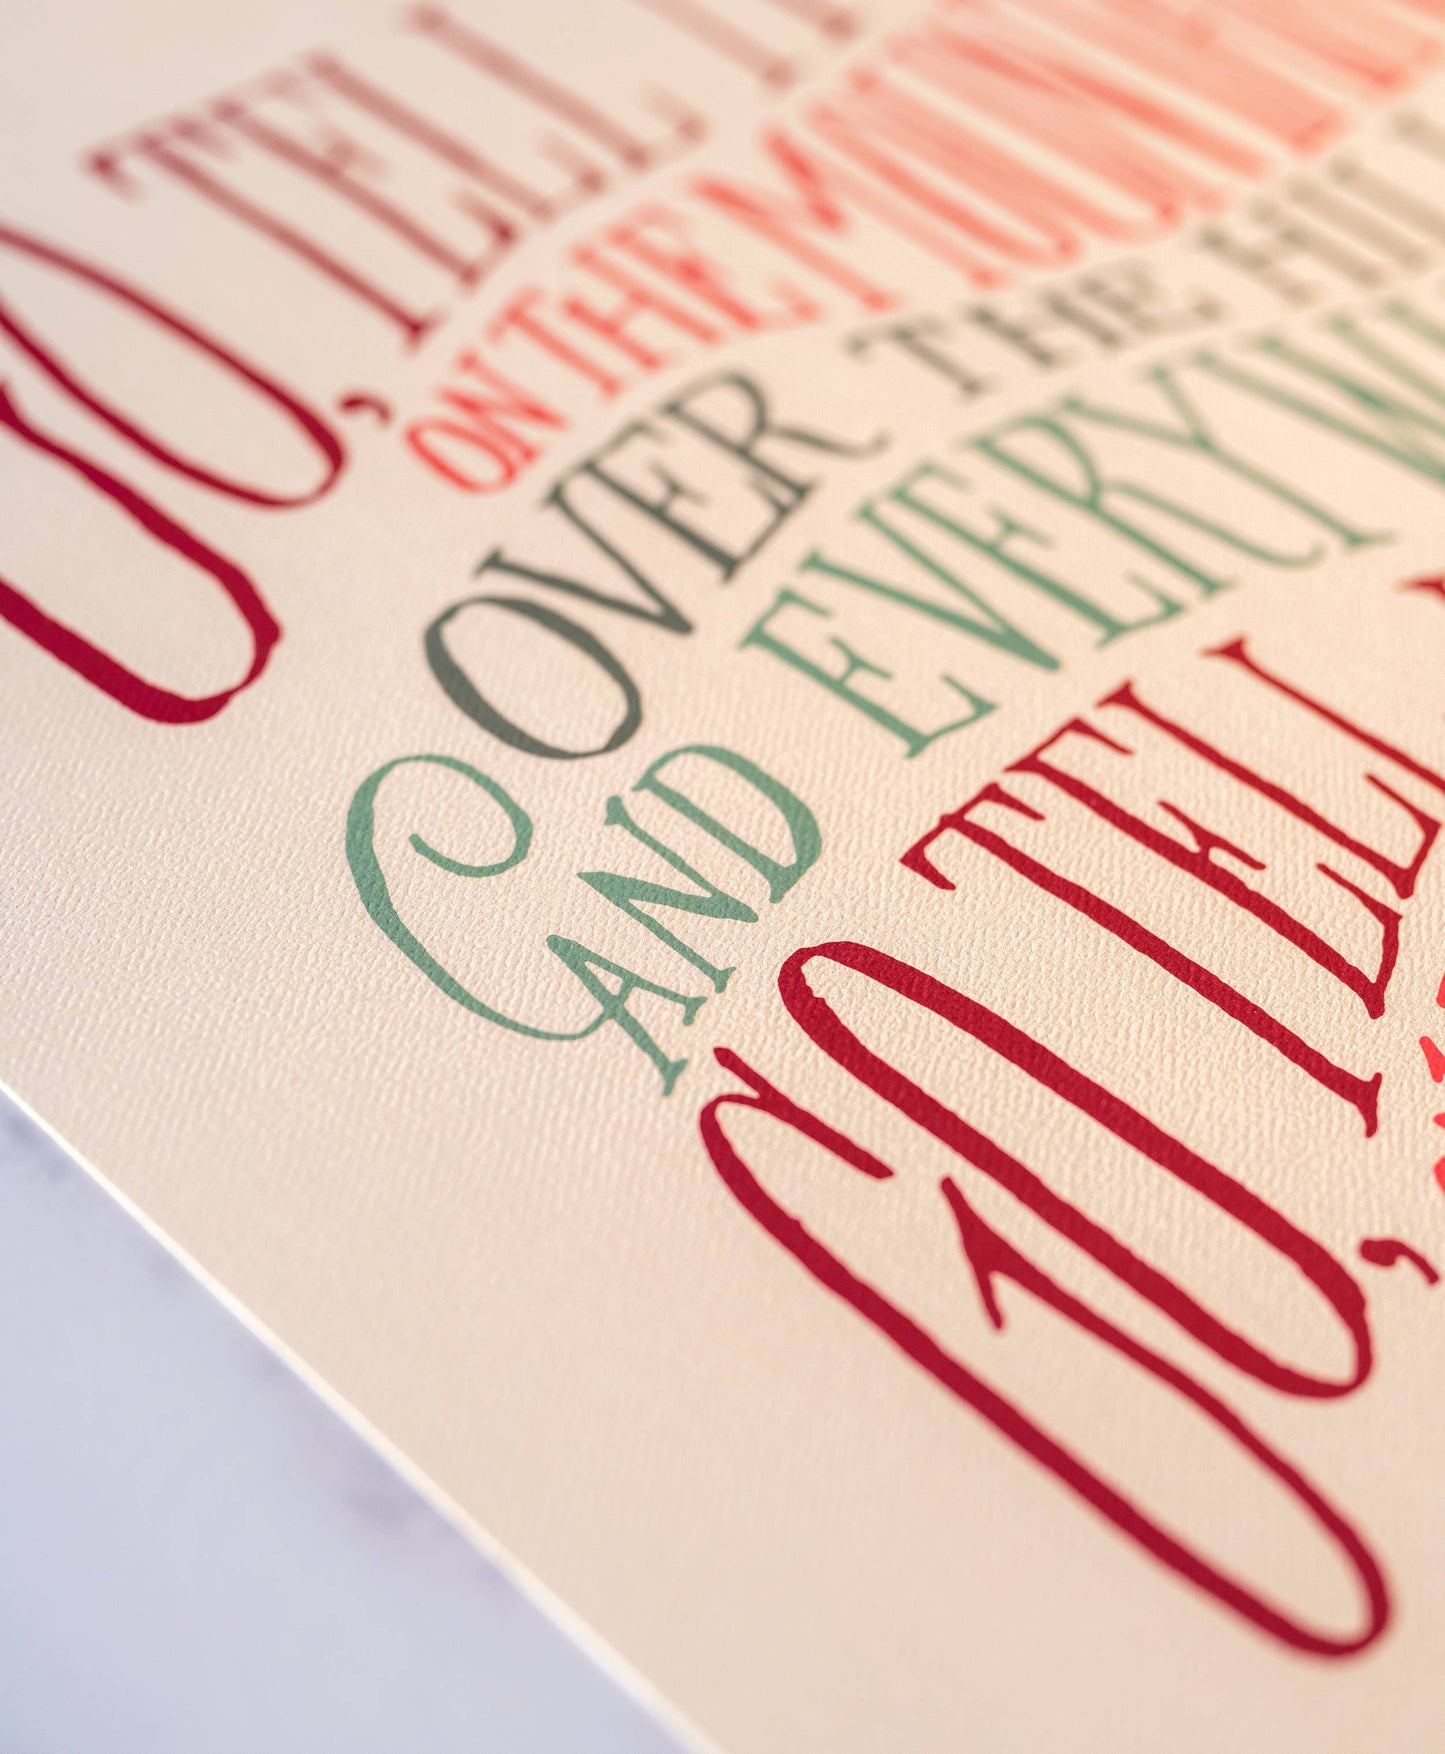 GO, TELL IT
ON THE MOUNT
OVER THE HIL
AND EVERYW
GO, TELL